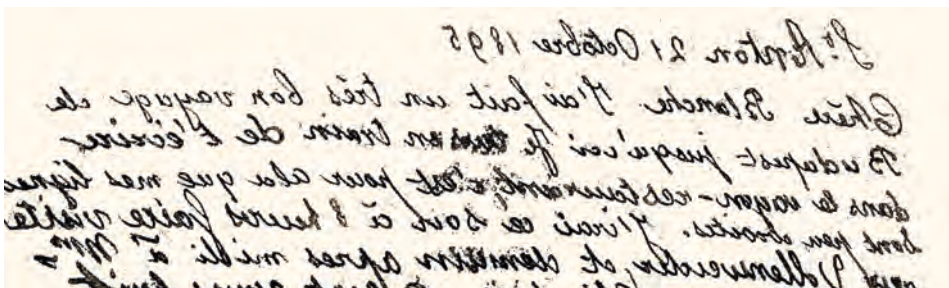 St. Anton 21 Octobre 1895
Chère Blanche J'ai fait un très bon voyage de
Budapest jusqu'ici Je suis en train de t'écrire
dans le wagon-restaurant, c'est pour cela que mes lignes
sont peu droites. J'irai ce soir à 8 heures faire visite
et demain après midi à Mme